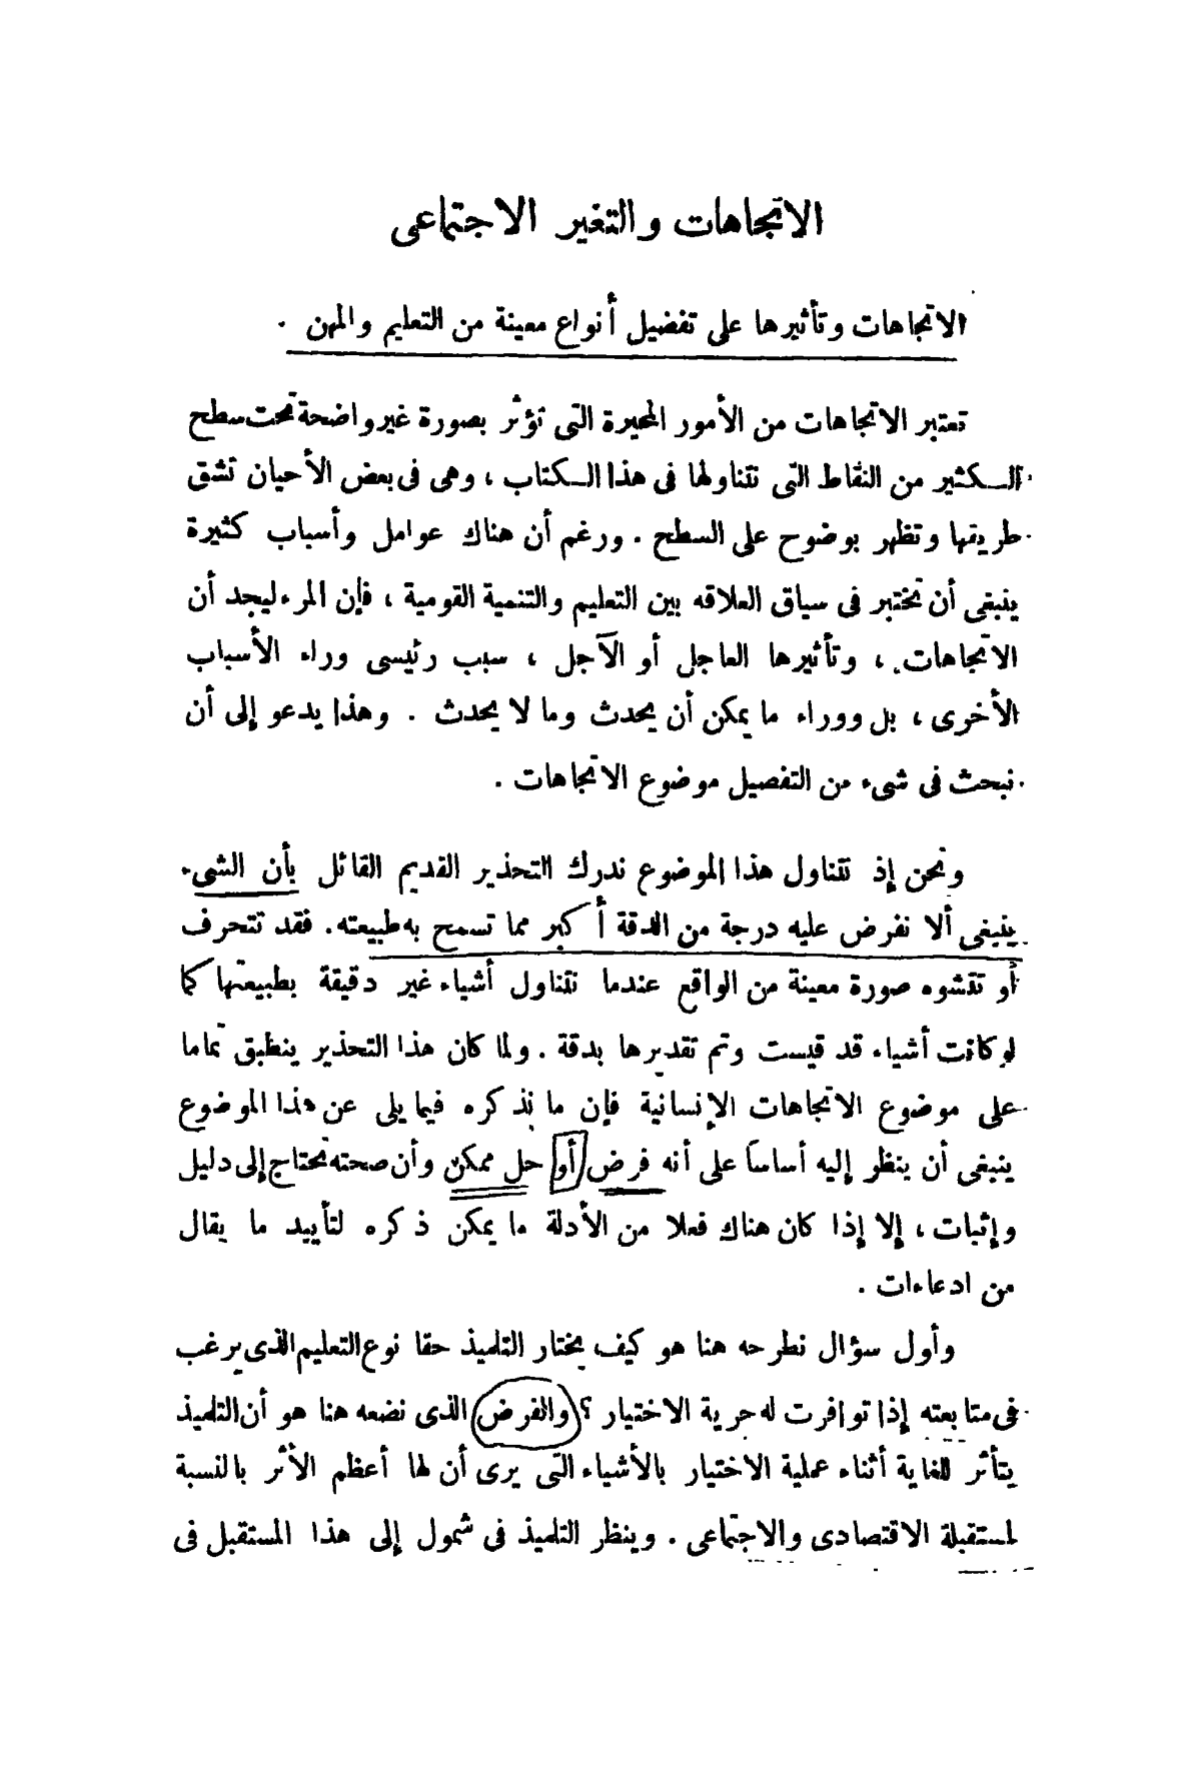 الاتجاهات والتغير الاجتماعى
الاتجاهات وتأثيرها على تفضيل أنواع معينة من التعليم والمهن .
تعتبر الاتجاهات من الأمور المحيرة التى تؤثر بصورة غير واضحة تحت سطح
الكثير من النقاط التى نتناولها فى هذا الكتاب ، وهى فى بعض الأحيان تشق
طريقها وتظهر بوضوح على السطح . ورغم أن هناك عوامل وأسباب كثيرة
ينبغى أن تختبر فى سياق العلاقه بين التعليم والتنمية القومية ، فإن المرء ليجد أن
الاتجاهات ، وتأثيرها العاجل أو الآجل ، سبب رئيسى وراء الأسباب
الأخرى ، بل ووراء ما يمكن أن يحدث وما لا يحدث . وهذا يدعو إلى أن
نبحث فى شىء من التفصيل موضوع الاتجاهات .
ونحن إذ نتناول هذا الموضوع ندرك التحذير القديم القائل بأن الشىء
ينبغى ألا نفرض عليه درجة من الدقة أكبر مما تسمح به طبيعته . فقد تتحرف
أو تتشوه صورة معينة من الواقع عندما نتناول أشياء غير دقيقة بطبيعتها كما
لو كانت أشياء قد قيست وتم تقديرها بدقة . ولما كان هذا التحذير ينطبق تماما
على موضوع الاتجاهات الإنسانية فإن ما نذكره فيما يلى عن هذا الموضوع
ينبغى أن ينظر إليه أساساً على أنه فرض أو حل ممكن وأن صحته تحتاج إلى دليل
وإثبات ، إلا إذا كان هناك فعلا من الأدلة ما يمكن ذكره لتأييد ما يقال
من ادعاءات .
وأول سؤال نطرحه هنا هو كيف يختار التلميذ حقا نوع التعليم الذى يرغب
فى متابعته إذا توافرت له حرية الاختيار ؟ والفرض الذى نضعه هنا هو أن التلميذ
يتأثر للغاية أثناء عملية الاختيار بالأشياء التى يرى أن لها أعظم الأثر بالنسبة
لمستقبلة الاقتصادى والاجتماعى . وينظر التلميذ فى شمول إلى هذا المستقبل فى